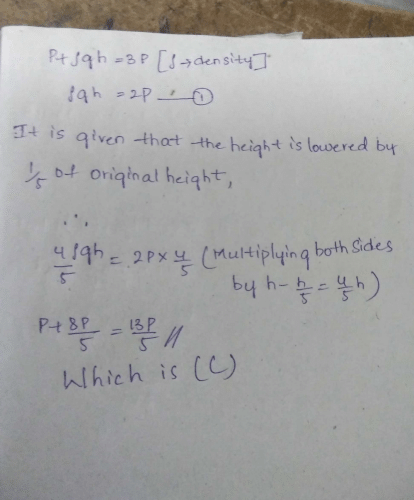 P+ ʃgh = 3P [ʃ→density]
ʃgh = 2P — ①
It is given that the height is lowered by
1/5 of original height,
∴
4/5 ʃgh = 2P × 4/5 (Multiplying both sides
by h - h/5 = 4/5 h)
P+ 8P/5 = 13P/5 //
Which is (C)